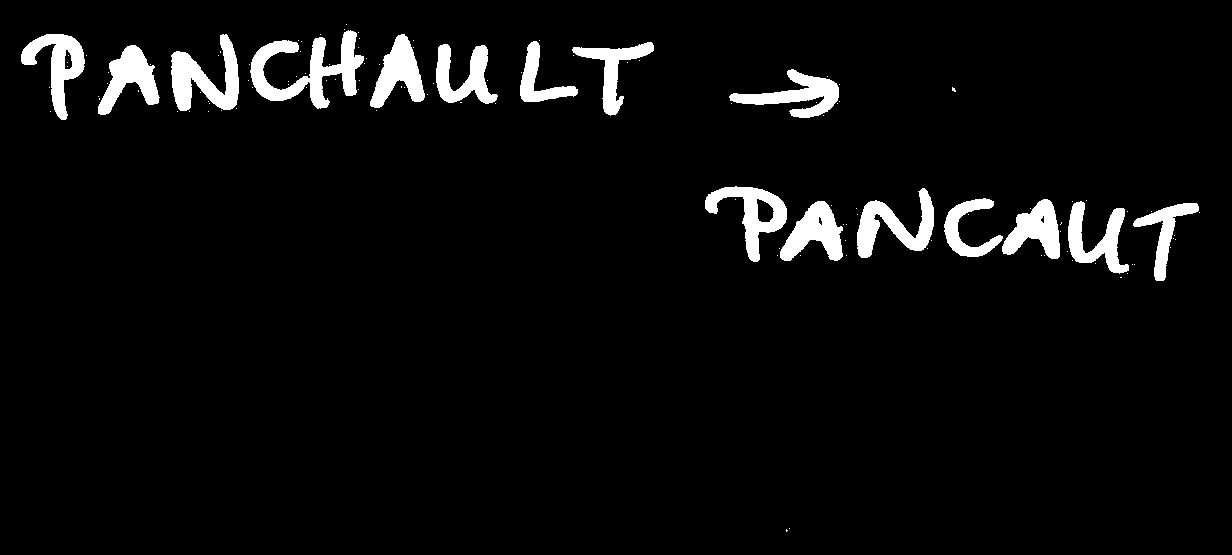 PANCHAULT →
PANCAUT